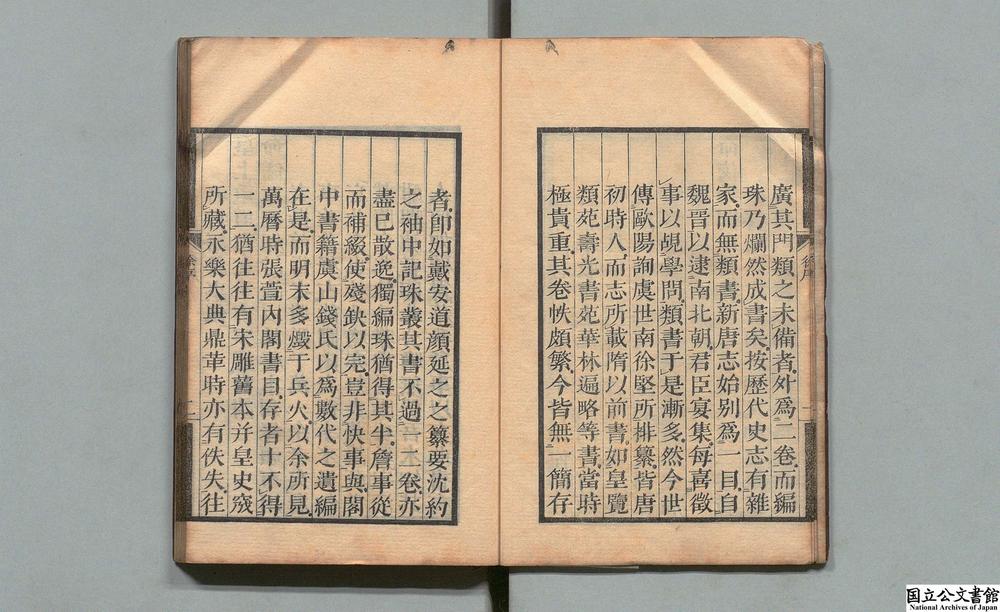 廣其門類之未備者外爲二卷而編
珠乃爛然成書矣按歷代史志有雜
家而無類書新唐志始别爲一目自
魏晉以逮南北朝君臣宴集每喜徵
事以覘學問類書于是漸多然今世
傳歐陽詢虞世南徐堅所排纂皆唐
初時人而志所載隋以前書如皇覽
類苑壽光書苑華林遍略等書當時
極貴重其卷帙頗繁今皆無一簡存
者卽如戴安道顏延之之纂要沈約
之袖中記珠叢其書不過一二卷亦
盡已散逸獨編珠猶得其半詹事從
而補綴使殘缺以完豈非快事與閣
中書籍虞山錢氏以爲數代之遺編
在是而明末多燬于兵火以余所見
萬曆時張萱內閣書目存者十不得
一二猶往往有宋雕舊本并皇史宬
所藏永樂大典鼎革時亦有佚失往
徐序
二
国立公文書館
National Archives of Japan